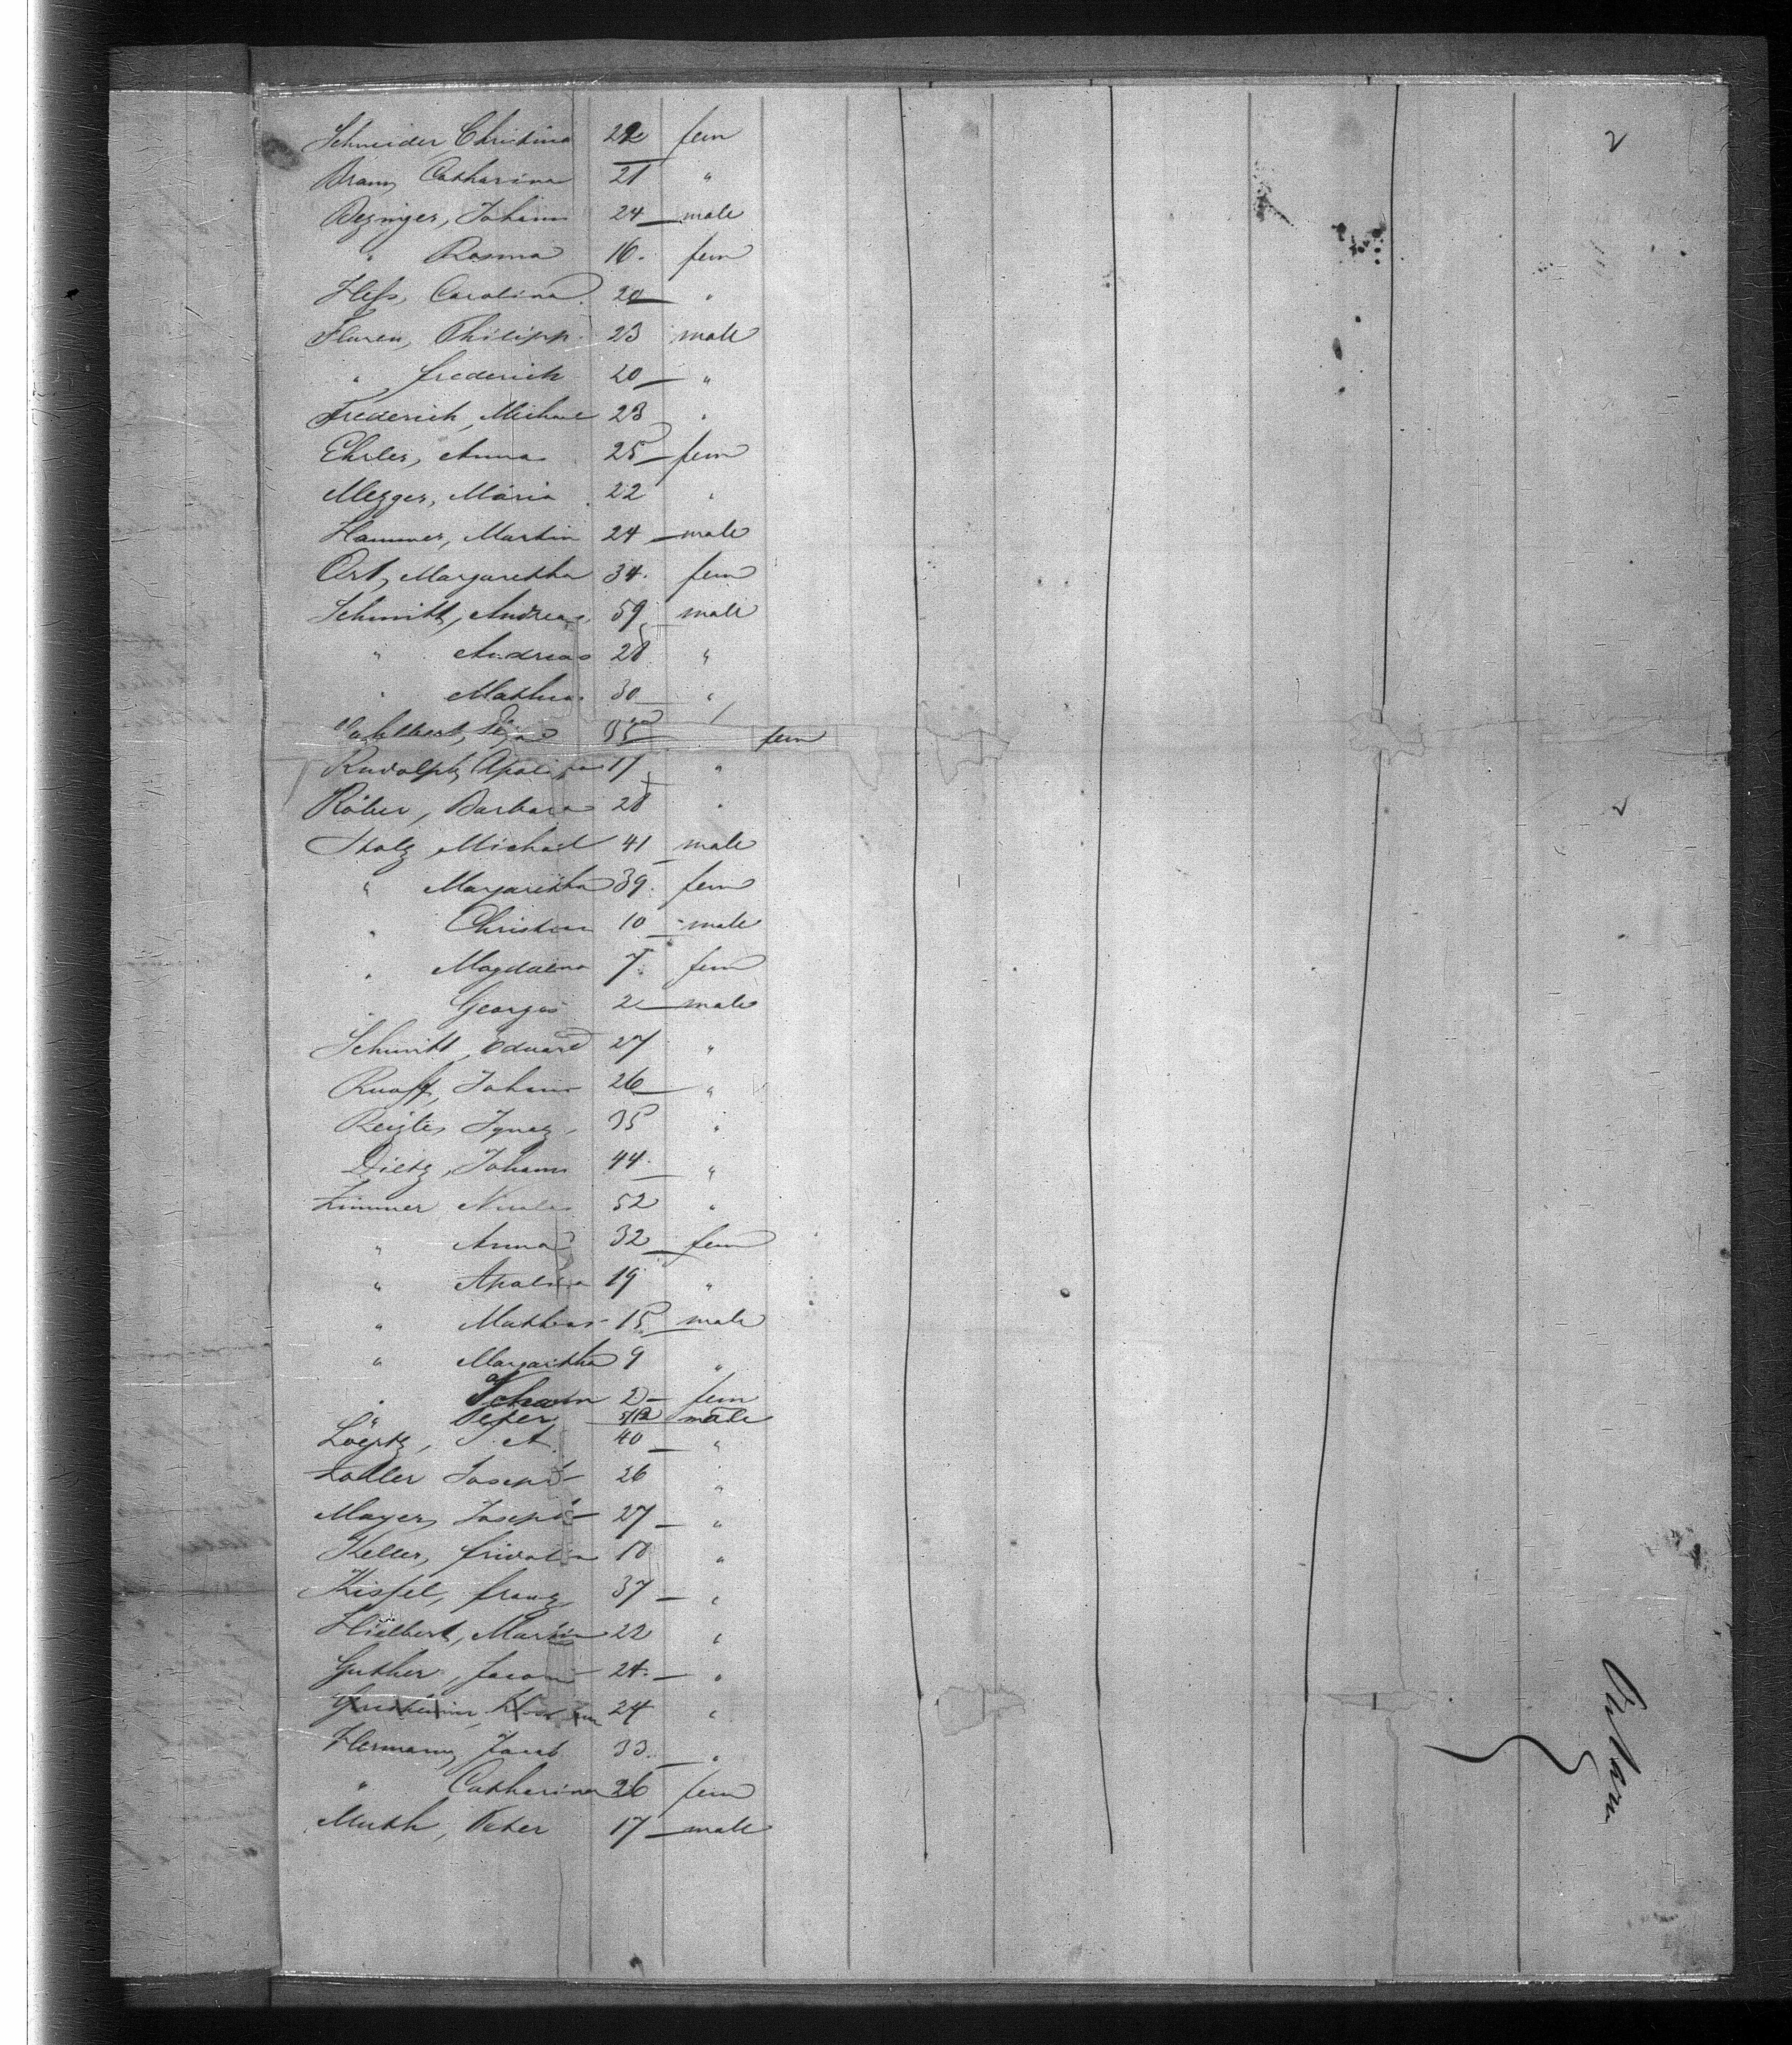 Schneider, Christina 22 fem
Braun, Catharina 21 "
Bezinger, Johann 24 male
" Rosina 16 fem
Heſs, Carolina 20 "
Fluren, Philipp 23 male
" frederich 20 "
Frederich, Michael 23 "
Ehrler, Anna 25 fem
Mezger, Maria 22 "
Hammer, Martin 24 male
Ort, Margaretha 34 fem
Schmitt, Andreas 59 male
" Andreas 28 "
" Mathias 30 "
35 fem
Rudolph, 17 "
Röber, Barbara 28 "
Stolz Michael 41 male
" Margaretha 39 fem
" Christian 10 male
" Magdalena 7 fem
" George 2 male
Schmitt, Eduard 27 "
Ruoff, Johann 26 "
Ignaz 35 "
Dietz, Johann 44 "
Zimmer Nicolas 52 "
" Anna 32 fem
" 19 "
" Mathias 15 male
" Margaretha 9 "
" Johann 2 fem
" Peter 5/12 male
40 "
Zoller Joseph 26 "
Mayer, Joseph 27 "
Keller, fridolin 18 "
Kissel, franz 37 "
Hielbert, Martin 22 "
Guther, Jacob 24 "
24 "
Hermann, Jacob 33 "
" Catharina 26 fem
Muth, Peter 17 male